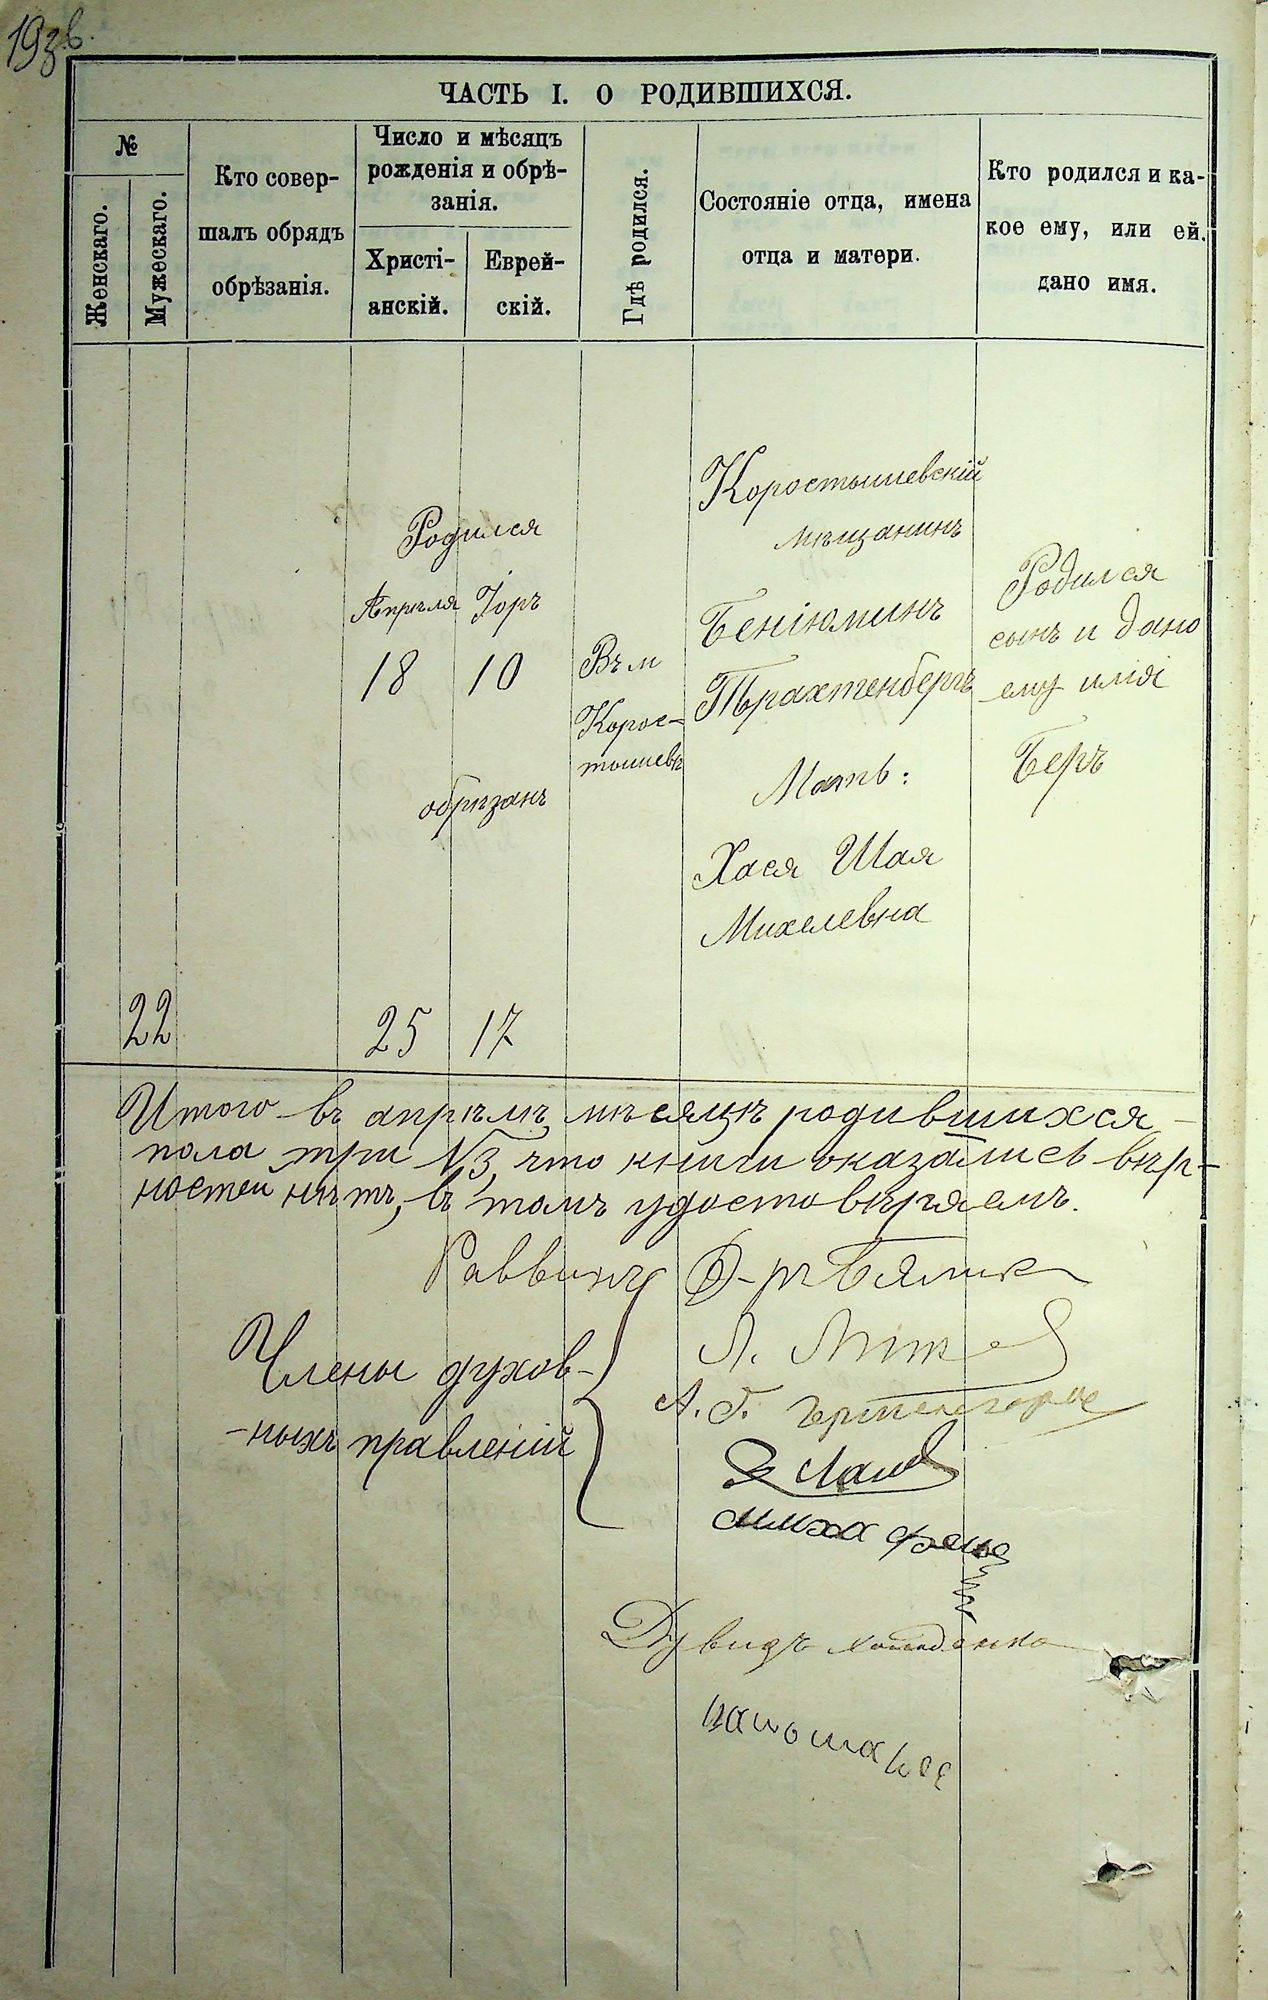 193 в.
ЧАСТЬ I. О РОДИВШИХСЯ.
№
Женскаго.
Мужескаго.
Кто совер-
шалъ обрядъ
обрѣзанія.
Число и мѣсяцъ
рожденія и обрѣ-
занія.
Христі-
анскій.
Еврей-
скій.
Гдѣ родился.
Состояніе отца, имена
отца и матери.
Кто родился и ка-
кое ему, или ей.
дано имя.
22
Родился
Апрѣля Іоръ
18 10
обрѣзанъ
25 17
Въ м
Корос-
тышевѣ
Коростышевскій
мѣщанинъ
Беніюминъ
Трахтенбергъ
Мать:
Хася Шая
Михелевна
Родился
сынъ и дано
ему имя
Беръ
Итого въ апрѣлѣ мѣсяцѣ родившихся
пола три №3, что книги оказались вѣр-
ностей нѣтъ, въ томъ удостовѣряемъ.
Раввинъ Д-ръ Бялик
Члены духов-
-ныхъ правленій
Л.
А. Г.
Дувидъ